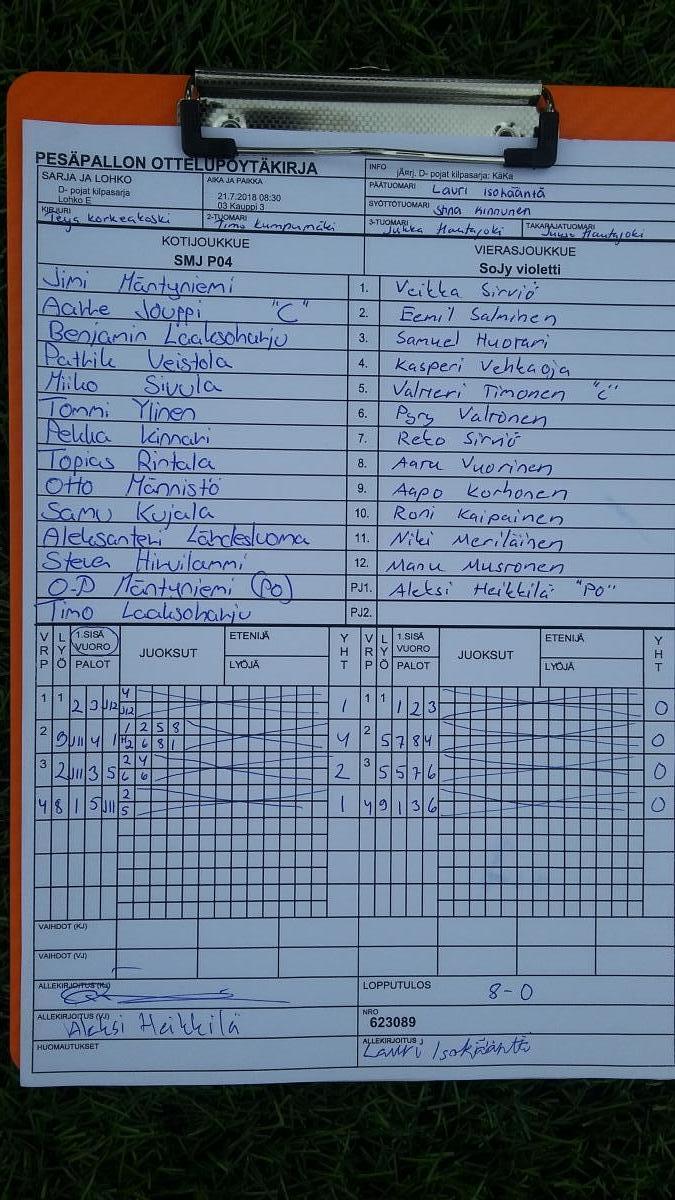 PESÄPALLON OTTELUPÖYTÄKIRJA
SARJA JA LOHKO
D- pojat kilpasarja
Lohko E
AIKA JA PAIKKA
21.7.2018 08:30
03 Kauppi 3
INFO
järj. D- pojat kilpasarja: KäKa
PÄÄTUOMARI Lauri Isokääntä
SYÖTTÖTUOMARI Stina Kinnunen
KIRJURI Teija Korkeakoski
2-TUOMARI Timo Kumpumäki
3-TUOMARI Jukka Hautajoki
TAKARAJATUOMARI Hautajoki
KOTIJOUKKUE
SMJ P04
VIERASJOUKKUE
SoJy violetti
Jimi Mäntyniemi 1. Veikka Sirviö
Aatte Jouppi "C" 2. Eemil Salminen
Benjamin Laaksoharju 3. Samuel Huotari
Patrik Veistola 4. Kasperi Vehkaoja
Miiko Sivula 5. Valtteri Timonen "C"
Tommi Ylinen 6. Pyry Valtonen
Pekka Kinnari 7. Reko Sirviö
Topias Rintala 8. Aaru Vuorinen
Otto Männistö 9. Aapo Korhonen
Samu Kujala 10. Roni Kaipainen
Aleksanteri Lähdesluoma 11. Niki Meriläinen
Steven Hirvilammi 12. Manu Mustonen
O-P Mäntyniemi (PO) PJ1. Aleksi Heikkilä "PO"
Timo Laaksoharju PJ2.
VRP LYÖ 1.SISÄ VUORO PALOT JUOKSUT ETENIJÄ LYÖJÄ YHT VRP LYÖ 1.SISÄ VUORO PALOT JUOKSUT ETENIJÄ LYÖJÄ YHT
1 1 2 3 J12 4 J12 1 1 1 1 2 3 0
2 9 J11 4 1 1 2 5 8 2 6 8 1 4 2 5 7 8 4 0
3 2 J11 3 5 2 4 6 6 2 3 5 5 7 6 0
4 8 1 5 J11 2 5 1 4 9 1 3 6 0
VAIHDOT (KJ)
VAIHDOT (VJ)
ALLEKIRJOITUS (KJ)
LOPPUTULOS 8-0
ALLEKIRJOITUS (VJ) Aleksi Heikkilä
NRO
623089
HUOMAUTUKSET
ALLEKIRJOITUS Lauri Isokääntä